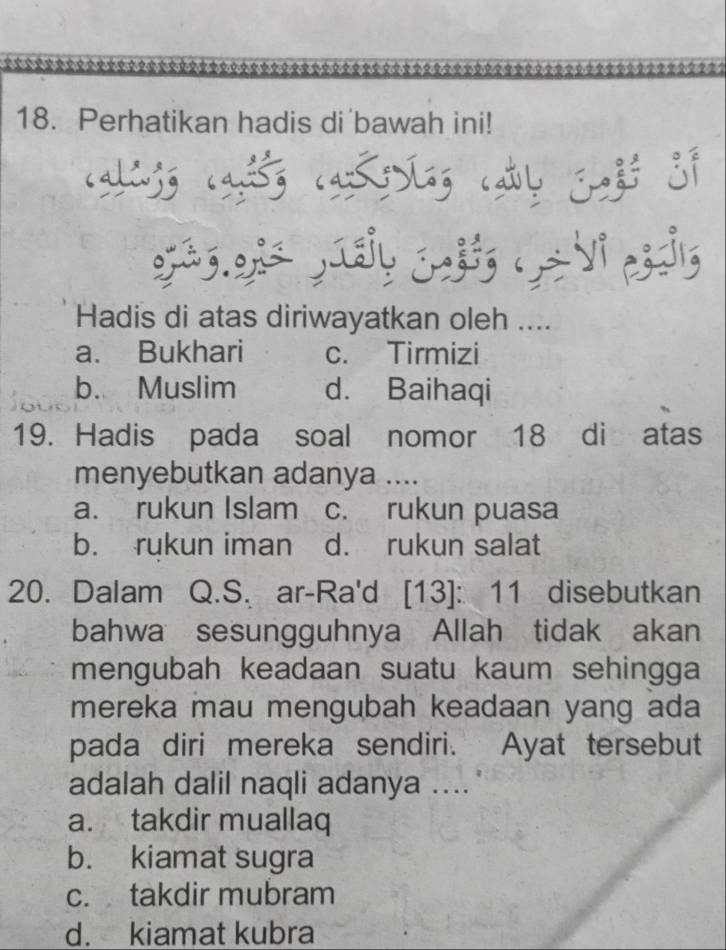 18. Perhatikan hadis di bawah ini!
أَنْ تُؤْمِنَ بِاللهِ، وَمَلَائِكَتِهِ، وَكُتُبِهِ، وَرُسُلِهِ،
وَالْيَوْمِ الْآخِرِ، وَتُؤْمِنَ بِالْقَدَرِ خَيْرِهِ وَشَرِّهِ
Hadis di atas diriwayatkan oleh ....
a. Bukhari c. Tirmizi
b. Muslim d. Baihaqi
19. Hadis pada soal nomor 18 di atas
menyebutkan adanya ....
a. rukun Islam c. rukun puasa
b. rukun iman d. rukun salat
20. Dalam Q.S. ar-Ra'd [13]: 11 disebutkan
bahwa sesungguhnya Allah tidak akan
mengubah keadaan suatu kaum sehingga
mereka mau mengubah keadaan yang ada
pada diri mereka sendiri. Ayat tersebut
adalah dalil naqli adanya ....
a. takdir muallaq
b. kiamat sugra
c. takdir mubram
d. kiamat kubra